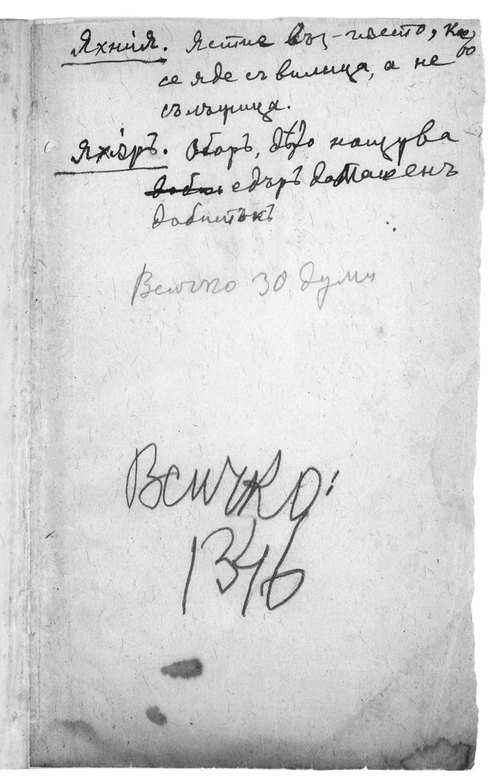 Яхни́я. Ястие въз-гъсто, кое́то
се яде съ вилица, а не
съ лъжица.
Яхъ́ръ. Оборъ, дѣто нощува
едъръ домашенъ
добитъкъ
Всичко 30 думи
Всичко:
1346